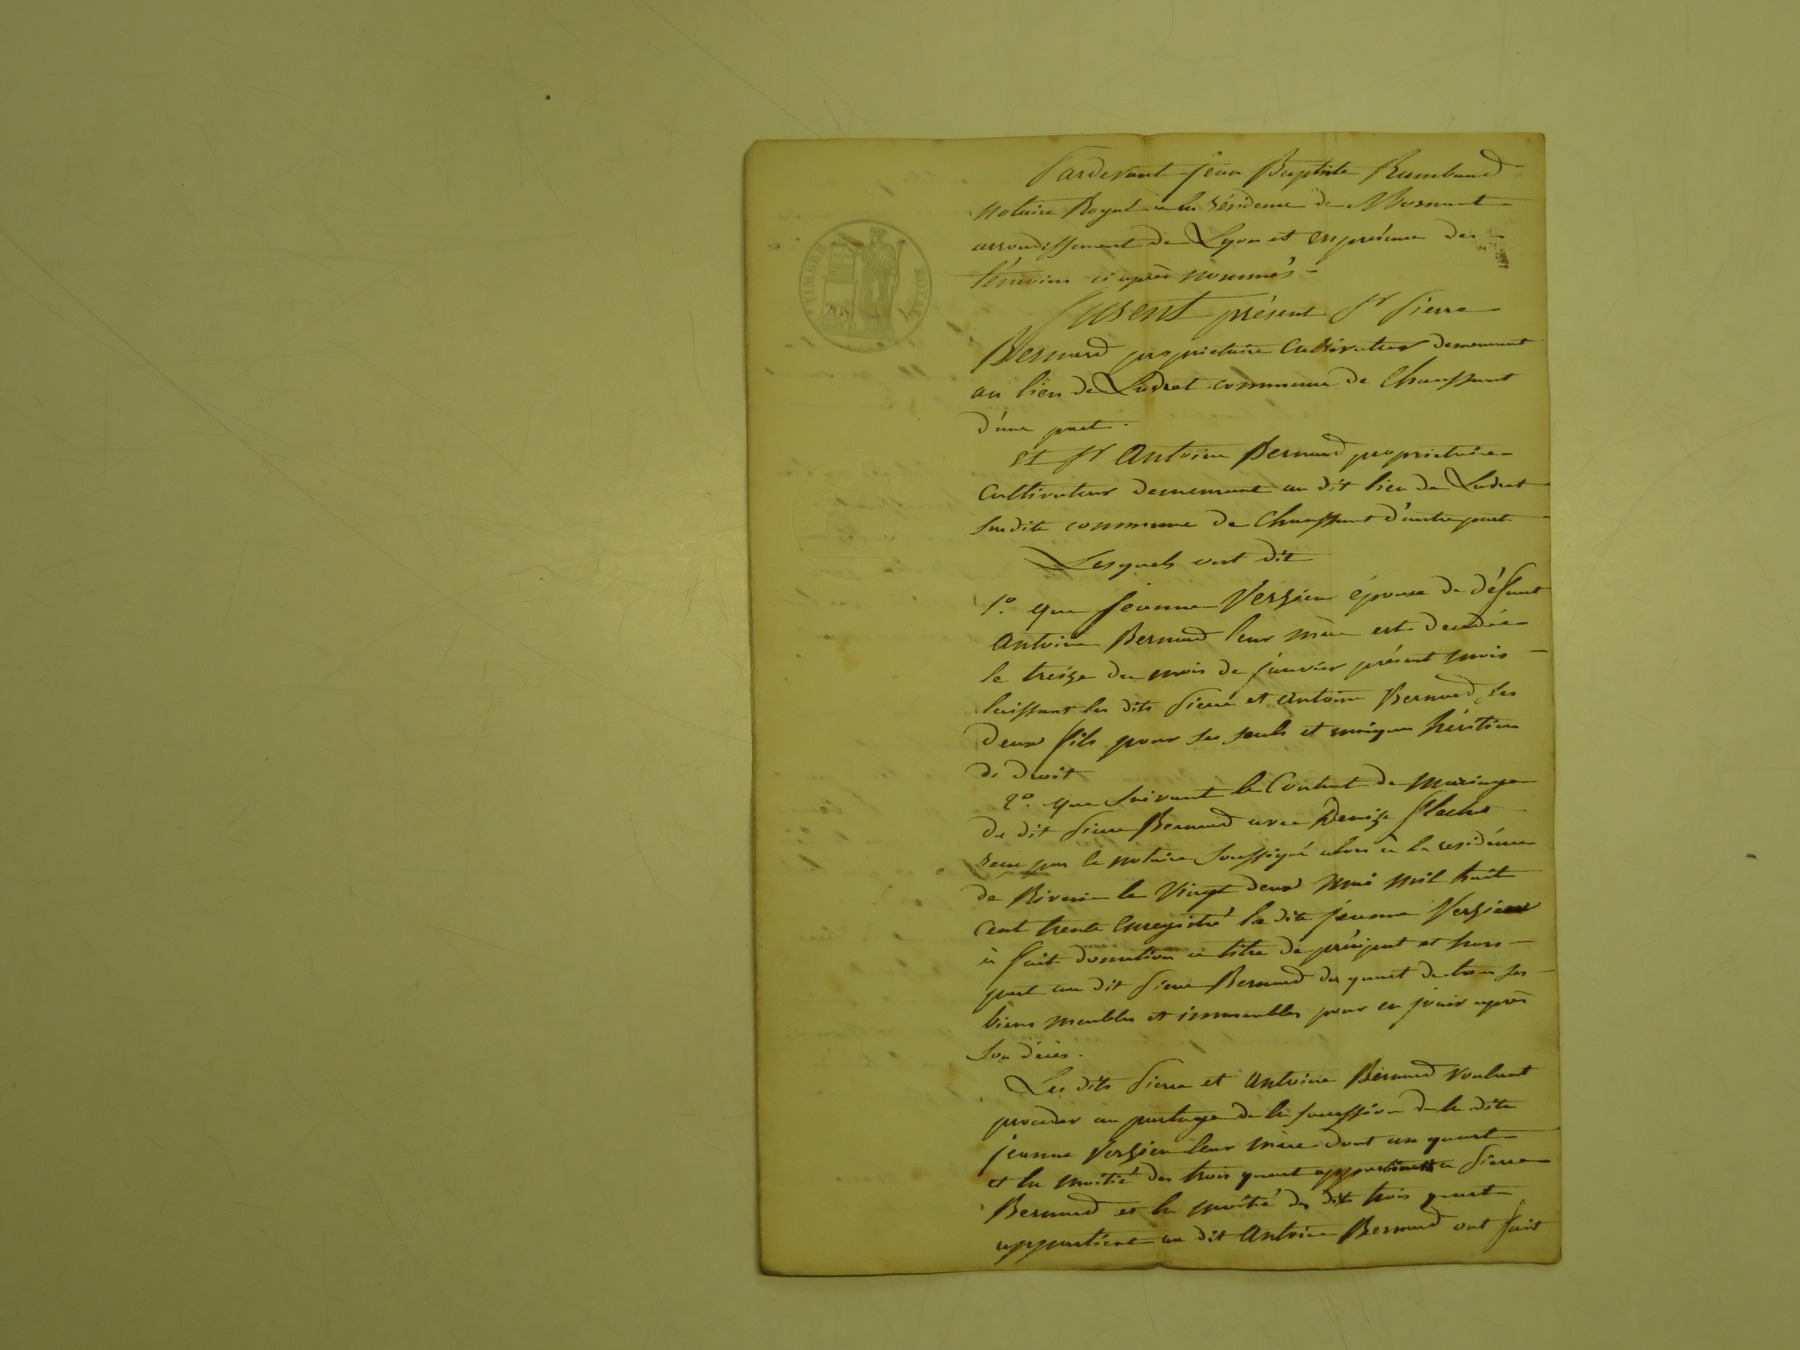 TIMBRE ROYAL
Pardevant jean Baptiste Rambaud
notaire Royal à la résidence de Mornant
arrondissement de Lyon et en présence des
témoins ci après nommés
furent présent Sr Pierre
Bernard propriétaire Cultivateur demeurant
au lieu de Ludret commune de Chaussant
d'une part.
et Sr Antoine Bernard propriétaire
Cultivateur demeurant au dit lieu de Ludret
susdite commune de Chaussant d'autre part
Lesquels ont dit
1o. que jeanne Verzieu épouse de défunt
Antoine Bernard leur mère est decedée
le treize du mois de janvier présent mois
laissant les dits Pierre et Antoine Bernard ses
deux fils pour ses seuls et uniques héritiers
de droit
2o. que suivant le Contrat de mariage
de dit Pierre Bernard avec Denize
reçu par le notaire soussigné alors à la residence
de Riverie le Vingt deux mai mil huit
cent trente enregistré la dite jeanne Verzieu
à fait donation à titre de préciput et hors
part au dit Pierre Bernard du quart de tous ses
biens meubles et immeubles pour en jouir après
son décès.
Les dits Pierre et Antoine Bernard voulant
proceder au partage de la succession de la dite
jeanne Verzieu leur mère dont un quart
et la moitié des trois quart appartient à Pierre
Bernard et la moitié des dits trois quart
appartient au dit Antoine Bernard ont fait